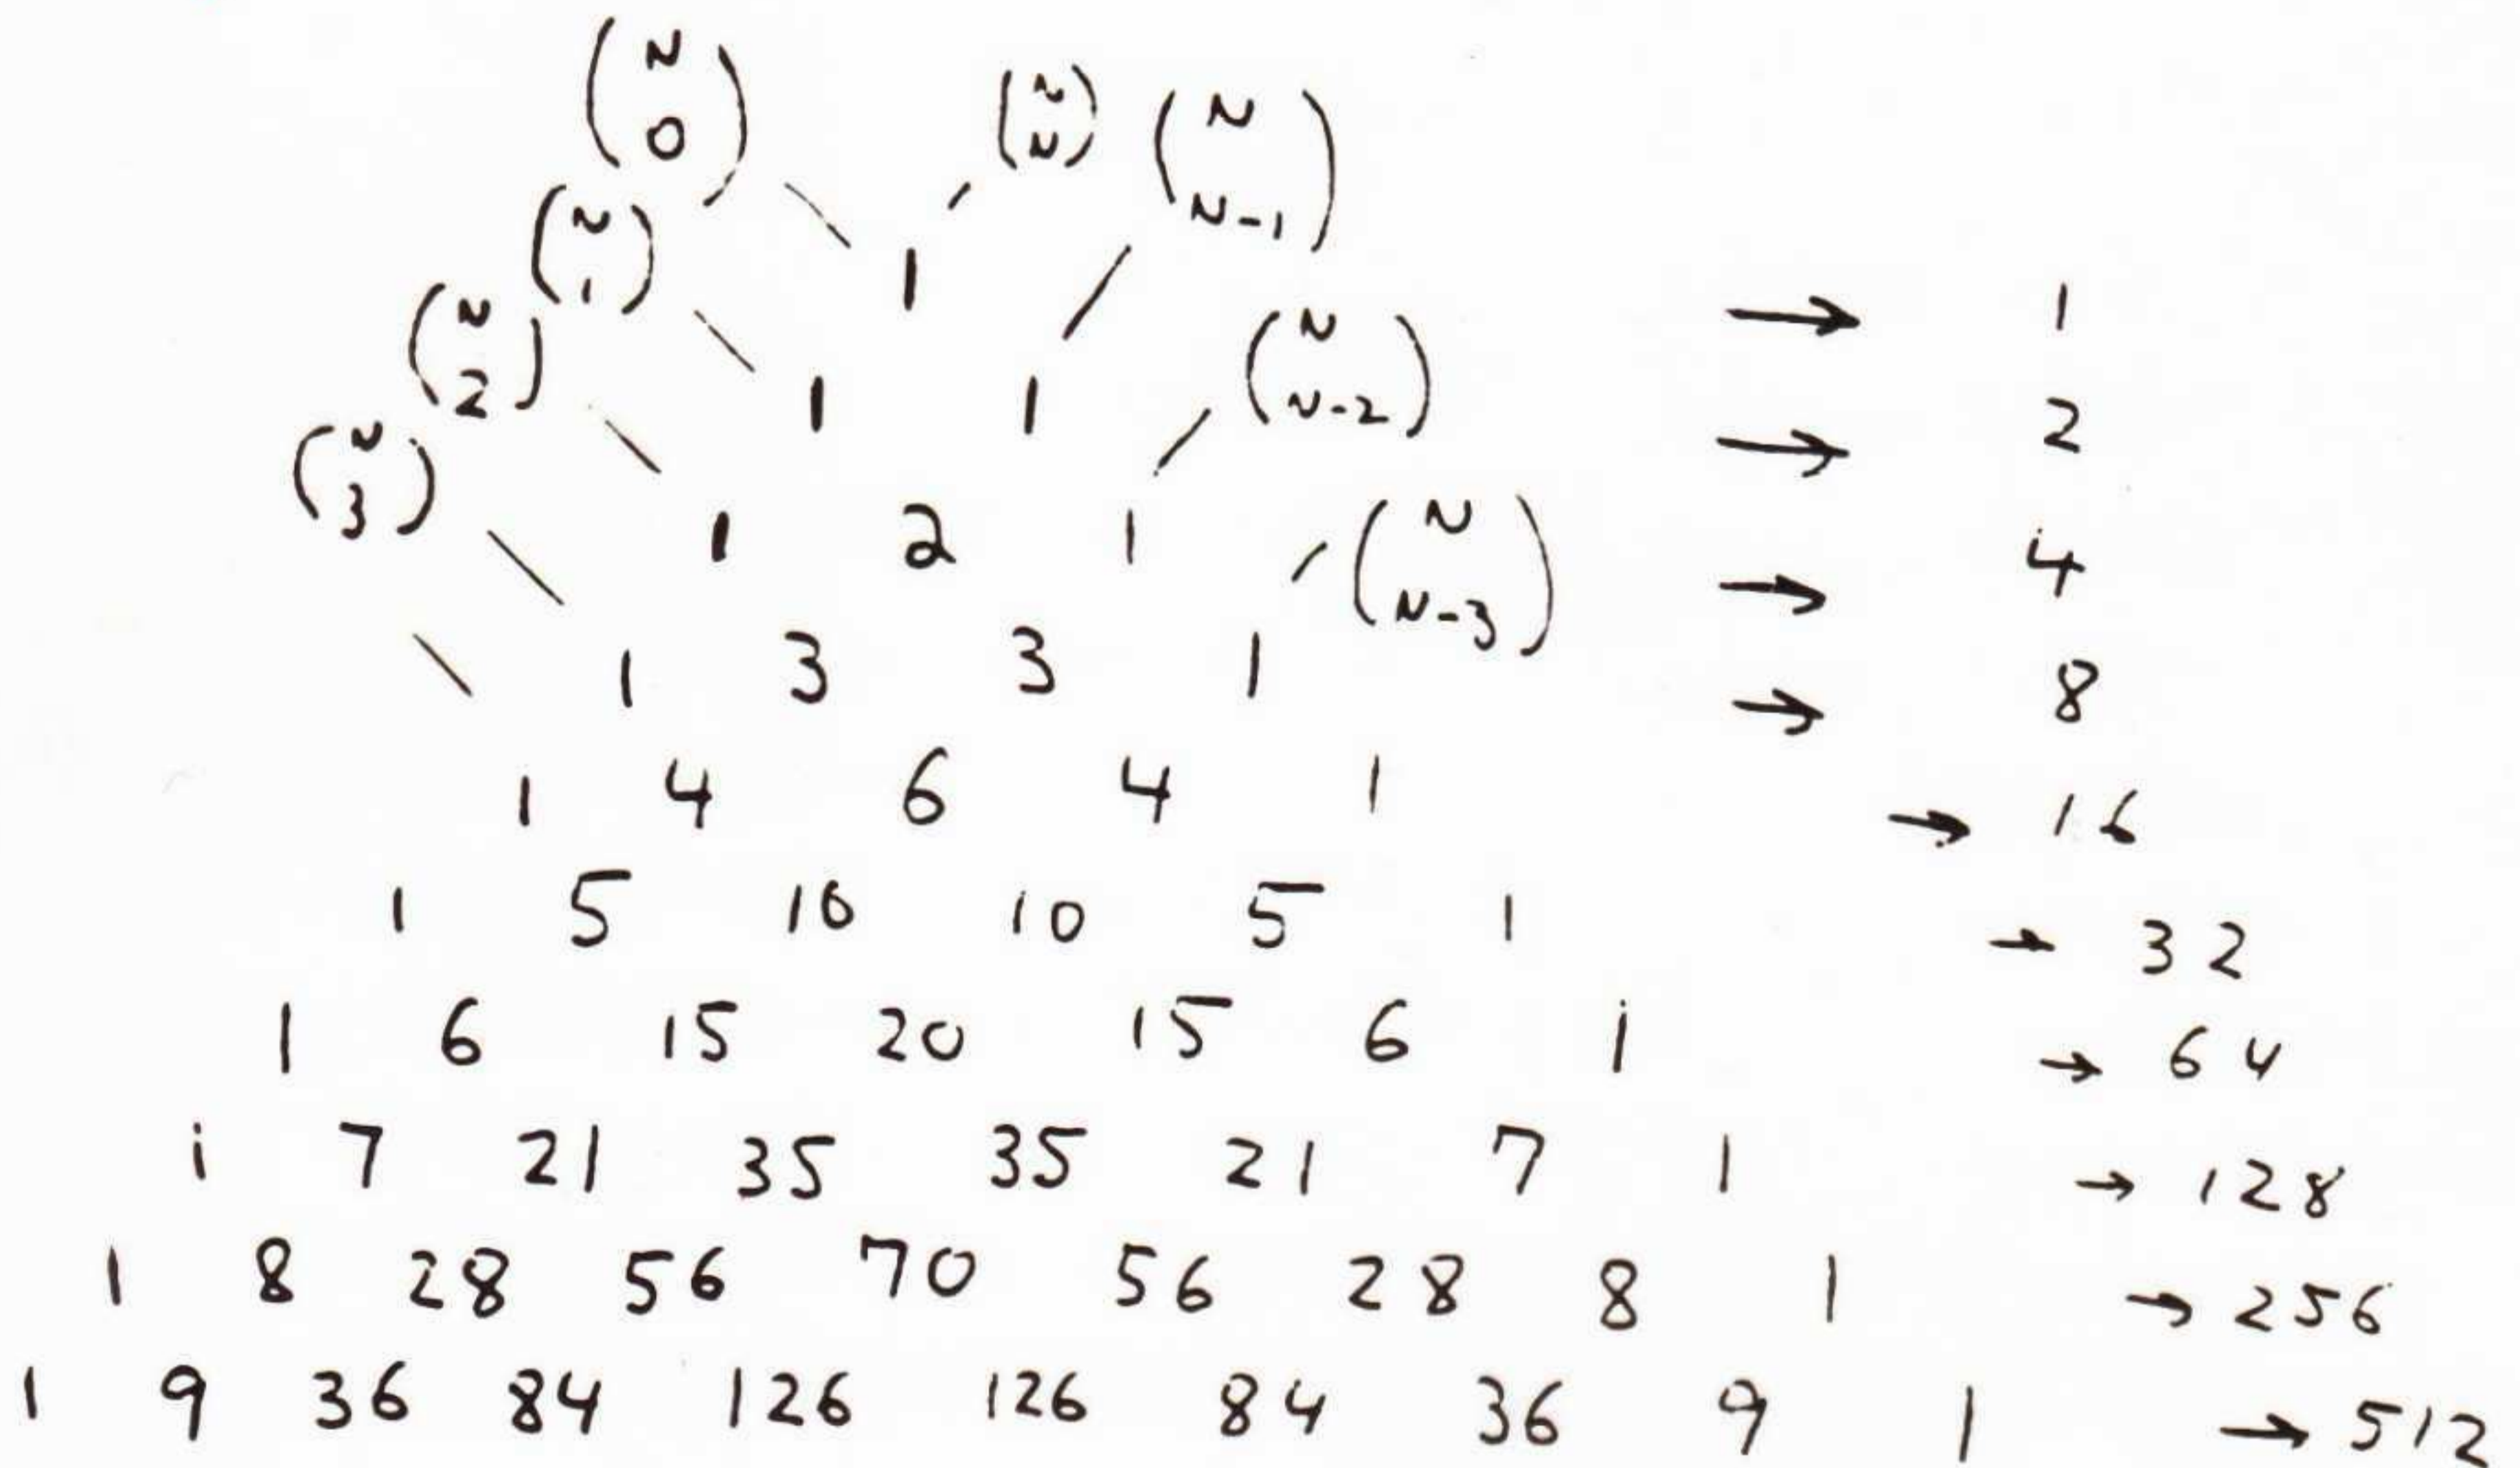 (N 0) (N N) (N N-1)
(N 1)
1 → 1
(N 2) (N N-2)
1 1 → 2
(N 3)
1 2 1 (N N-3) → 4
1 3 3 1 → 8
1 4 6 4 1 → 16
1 5 10 10 5 1 → 32
1 6 15 20 15 6 1 → 64
1 7 21 35 35 21 7 1 → 128
1 8 28 56 70 56 28 8 1 → 256
1 9 36 84 126 126 84 36 9 1 → 512